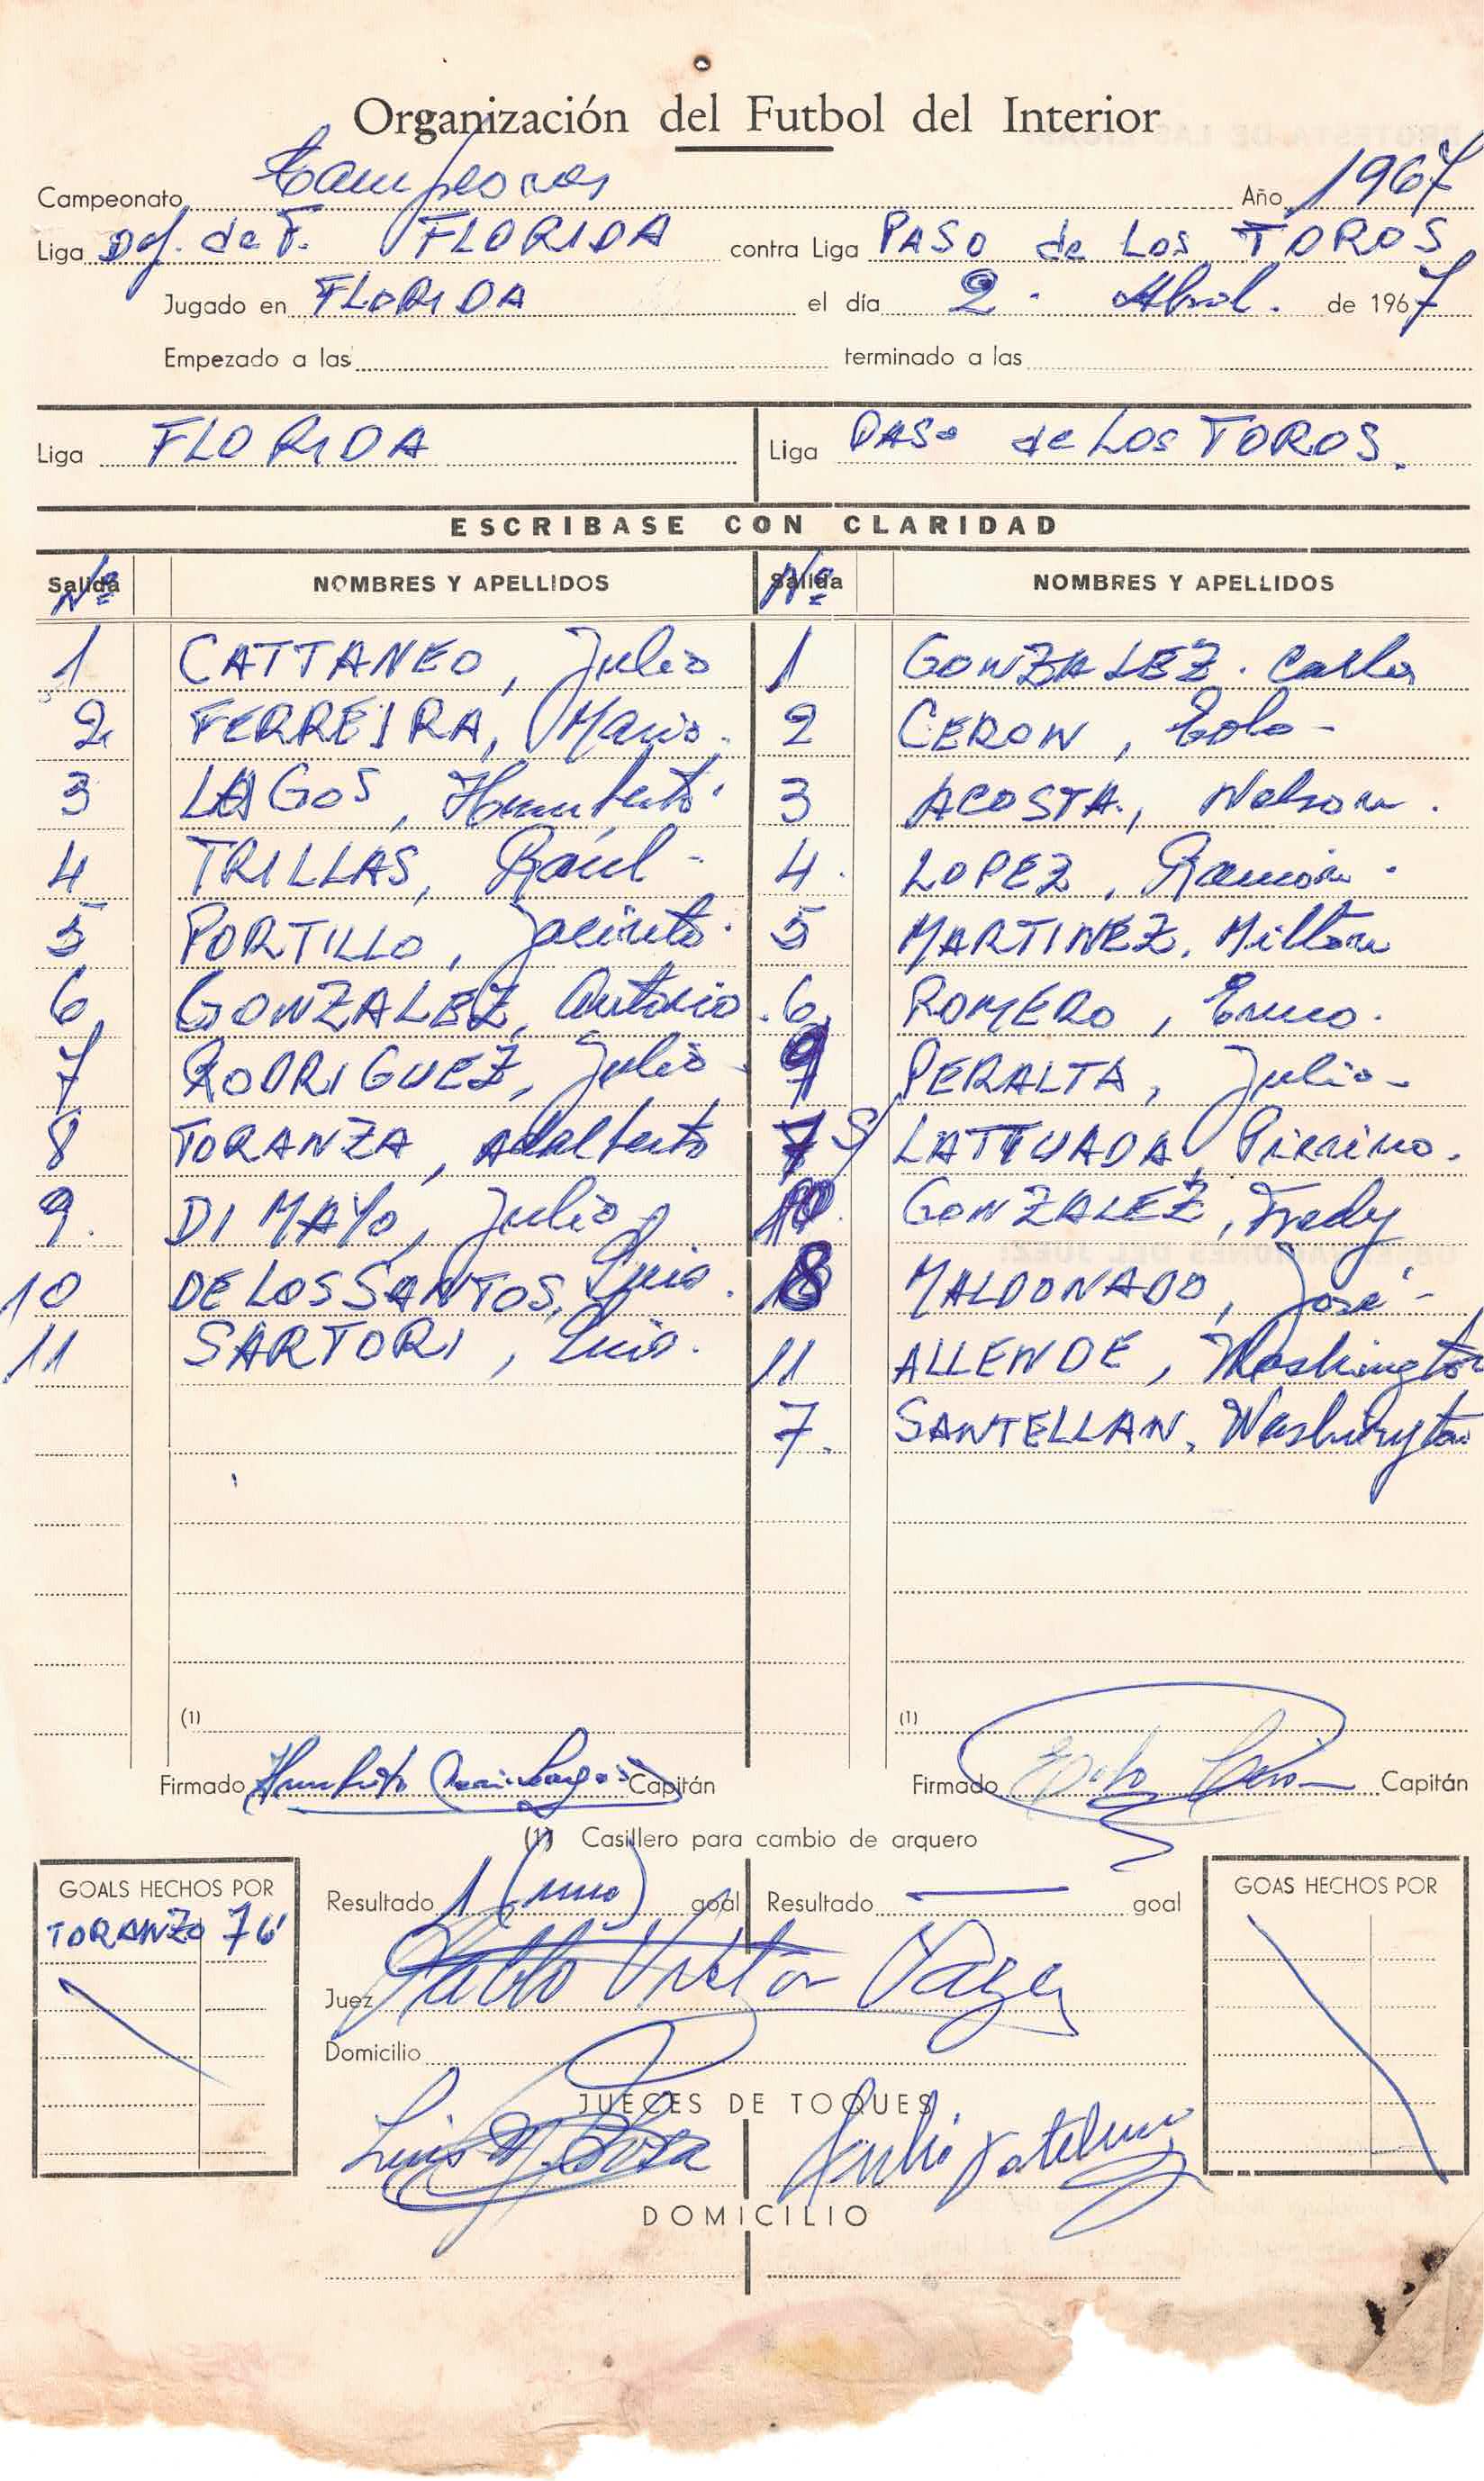 Organización del Futbol del Interior
Campeonato Campeones Año 1967
Liga Def. de F. FLORIDA contra Liga PASO de Los TOROS
Jugado en FLORIDA el día 2 · Abril. de 1967
Empezado a las terminado a las
Liga FLORIDA Liga PASO de Los TOROS.
ESCRIBASE CON CLARIDAD
Salida Nº NOMBRES Y APELLIDOS Salida Nº NOMBRES Y APELLIDOS
1 CATTANEO, Julio 1 GONZALEZ. Carlos
2 FERREIRA, Mario. 2 CERON, Eolo -
3 LAGOS, Humberto. 3 ACOSTA., Nelson.
4 TRILLAS, Raúl - 4. LOPEZ, Ramón.
5 PORTILLO, Jacinto. 5 MARTINEZ, Milton
6 GONZALEZ, Antonio. 6 ROMERO,
7 RODRIGUEZ, Julio - 9 PERALTA, Julio -
8 TORANZA, Adalberto 7 S/ LATTUADA, Pierino.
9. DI MAYO, Julio 10. GONZALEZ, Fredy
10 DE LOS SANTOS, Luis. 8 MALDONADO, José -
11 SARTORI, Luis. 11 ALLENDE, Washington
7. SANTELLAN, Washington
(1) (1)
Firmado Humberto Lagos Capitán Firmado Eolo Cerón Capitán
(1) Casillero para cambio de arquero
GOALS HECHOS POR Resultado 1 (uno) goal Resultado — goal GOAS HECHOS POR
TORANZO 76'
Juez Pablo Victor Vaga
Domicilio
JUECES DE TOQUES
Luis M. Sosa Julio
DOMICILIO